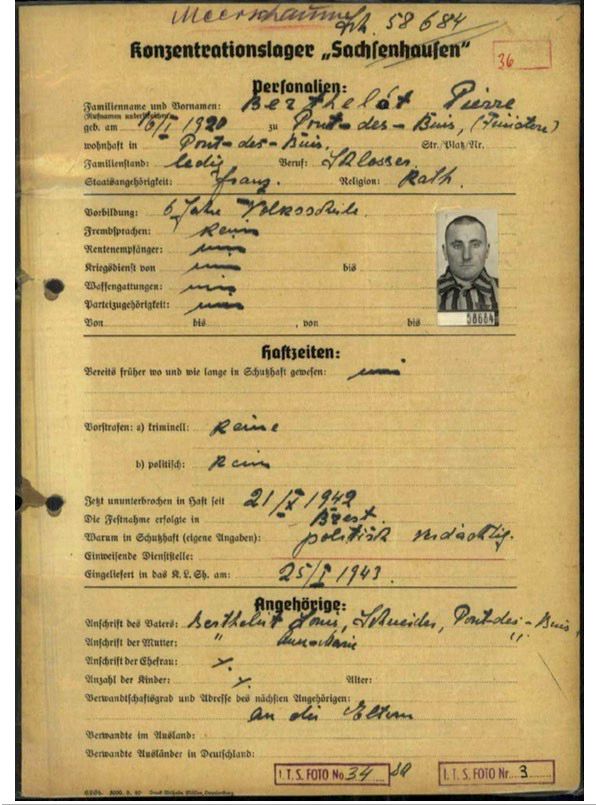 Sch. 58684
36
Konzentrationslager „Sachsenhausen“
Personalien:
Familienname und Vornamen: Berthelót Pierre
(Rufnamen unterstreichen)
geb. am 16/I 1920 zu Pont-des-Buis, (Finistere)
wohnhaft in Pont-des-Buis. Str./Platz/Nr.
Familienstand: ledig Beruf: Schlosser
Staatsangehörigkeit: franz. Religion: Kath.
Vorbildung: 6 Jahre Volksschule.
Fremdsprachen: Kein
Rentenempfänger: nein
Kriegsdienst von nein bis
Waffengattungen: nein
Parteizugehörigkeit: nein
Von bis , von bis
58684
Haftzeiten:
Bereits früher wo und wie lange in Schutzhaft gewesen: nein
Vorstrafen: a) kriminell: Keine
b) politisch: Kein
Jetzt ununterbrochen in Haft seit 21/X 1942
Die Festnahme erfolgte in Brest.
Warum in Schutzhaft (eigene Angaben): politisch verdächtig.
Einweisende Dienststelle:
Eingeliefert in das K.L.Sh. am: 25/I 1943.
Angehörige:
Anschrift des Vaters: Berthelót Louis, Schneider, Pont-des-Buis,
Anschrift der Mutter: " Anne-Marie "
Anschrift der Ehefrau: x.
Anzahl der Kinder: x. Alter:
Verwandtschaftsgrad und Adresse des nächsten Angehörigen:
an die Eltern
Verwandte im Ausland:
Verwandte Ausländer in Deutschland:
I.T.S. FOTO No. 34
I.T.S. FOTO Nr. 3